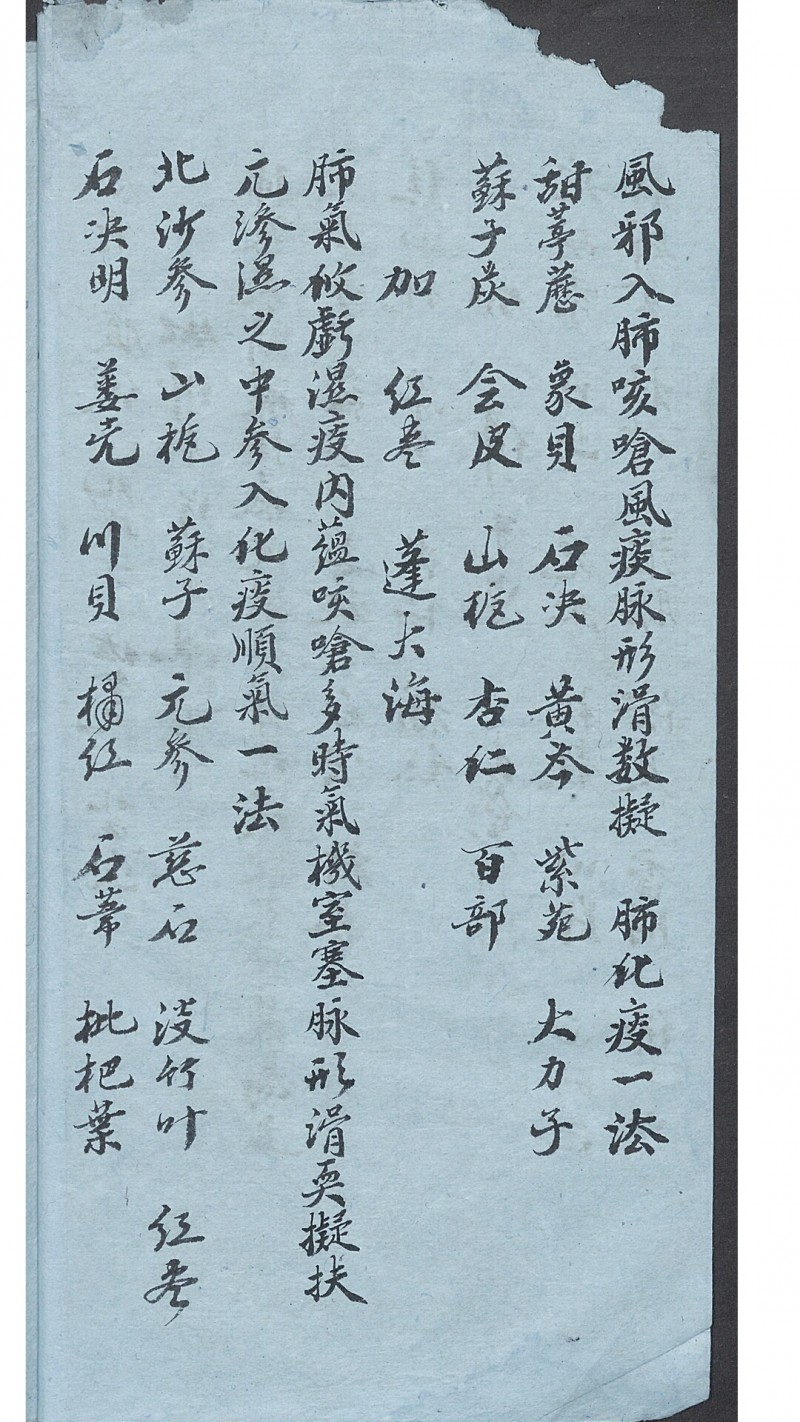 風邪入肺咳嗆風痰脉形滑数擬 肺化痰一法
甜葶藶 象貝 石决 黄芩 紫苑 大力子
蘇子炭 会皮 山栀 杏仁 百部
加 红枣 蓬大海
肺氣攸虧濕痰内蕴咳嗆多時氣機窒塞脉形滑耎擬扶
亢滲濕之中参入化痰順氣一法
北沙参 山栀 蘇子 元参 慈石 淡竹叶 红枣
石决明 蒌壳 川貝 橘红 石葦 枇杷葉